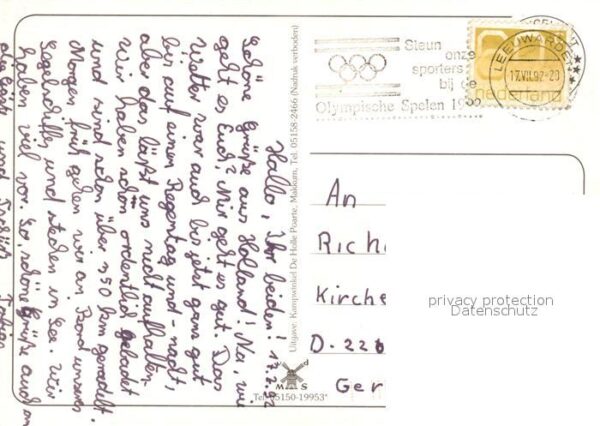 Hallo, Ihr beiden! 17.7.92
Schöne Grüße aus Holland! Na, wie
geht es Euch? Mir geht es gut. Das
Wetter war auch bis jetzt ganz gut
bis auf einen Regentag und -nacht,
aber das läßt uns nicht aufhalten.
Wir haben schon ordentlich geladet
und sind schon über 350 km geradelt.
Morgen früh gehen wir an Bord unseres
Segelschiffs und stechen in See. Wir
haben viel vor. So, schöne Grüße auch an
und
Tobias
Uitgave: Kampwinkel De Holle Poarte, Makkum, Tel. 05158-2466 (Nadruk verboden)
Steun
onze
sporters
bij de
Olympische Spelen 1992
LEEUWARDEN
17.VII.92-20
nederland
An
Rich
Kirche
D-226
Ger
privacy protection
Datenschutz
M S
Tel. 05150-19953*